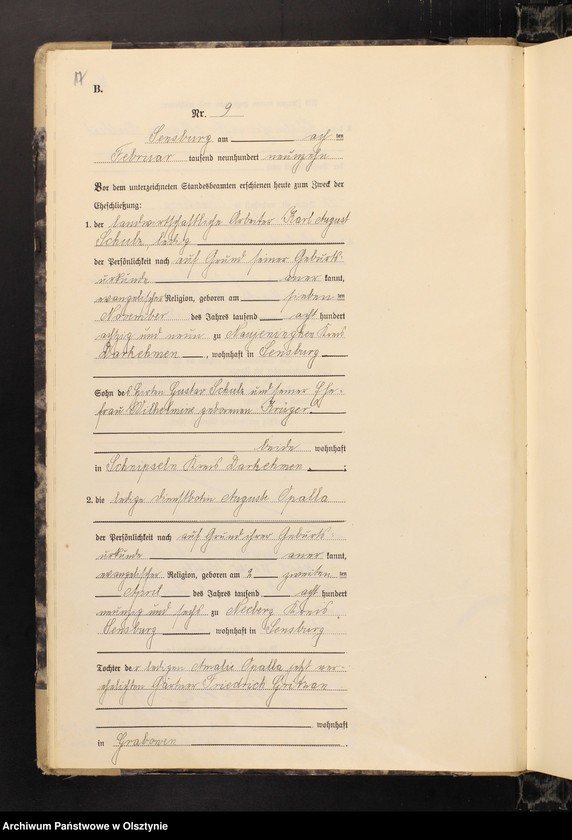 B.
Nr. 9
Sensburg am acht ten
Februar tausend neunhundert neunzehn
Vor dem unterzeichneten Standesbeamten erschienen heute zum Zweck der
Eheschließung:
1. der landwirtschaftliche Arbeiter Karl August
Schulz, ledig
der Persönlichkeit nach auf Grund seiner Geburts-
urkunde aner kannt,
evangelischer Religion, geboren am sieben ten
November des Jahres tausend acht hundert
achtzig und neun zu Kreis
Darkehmen, wohnhaft in Sensburg
Sohn des Hirten Gustav Schulz und seiner Ehe-
frau Wilhelmine geborenen Krüger.
beide wohnhaft
in Schnipseln Kreis Darkehmen.;
2. die ledige Dienstboten Auguste Opalla
der Persönlichkeit nach auf Grund ihrer Geburts-
urkunde aner kannt,
evangelischer Religion, geboren am 2 zweiten ten
April des Jahres tausend acht hundert
neunzig und sechs zu Kreis
Sensburg, wohnhaft in Sensburg
Tochter der ledigen Amalie Opalla jetzt ver-
ehelichten Gärtner Friedrich
wohnhaft
in Grabowen.
Archiwum Państwowe w Olsztynie